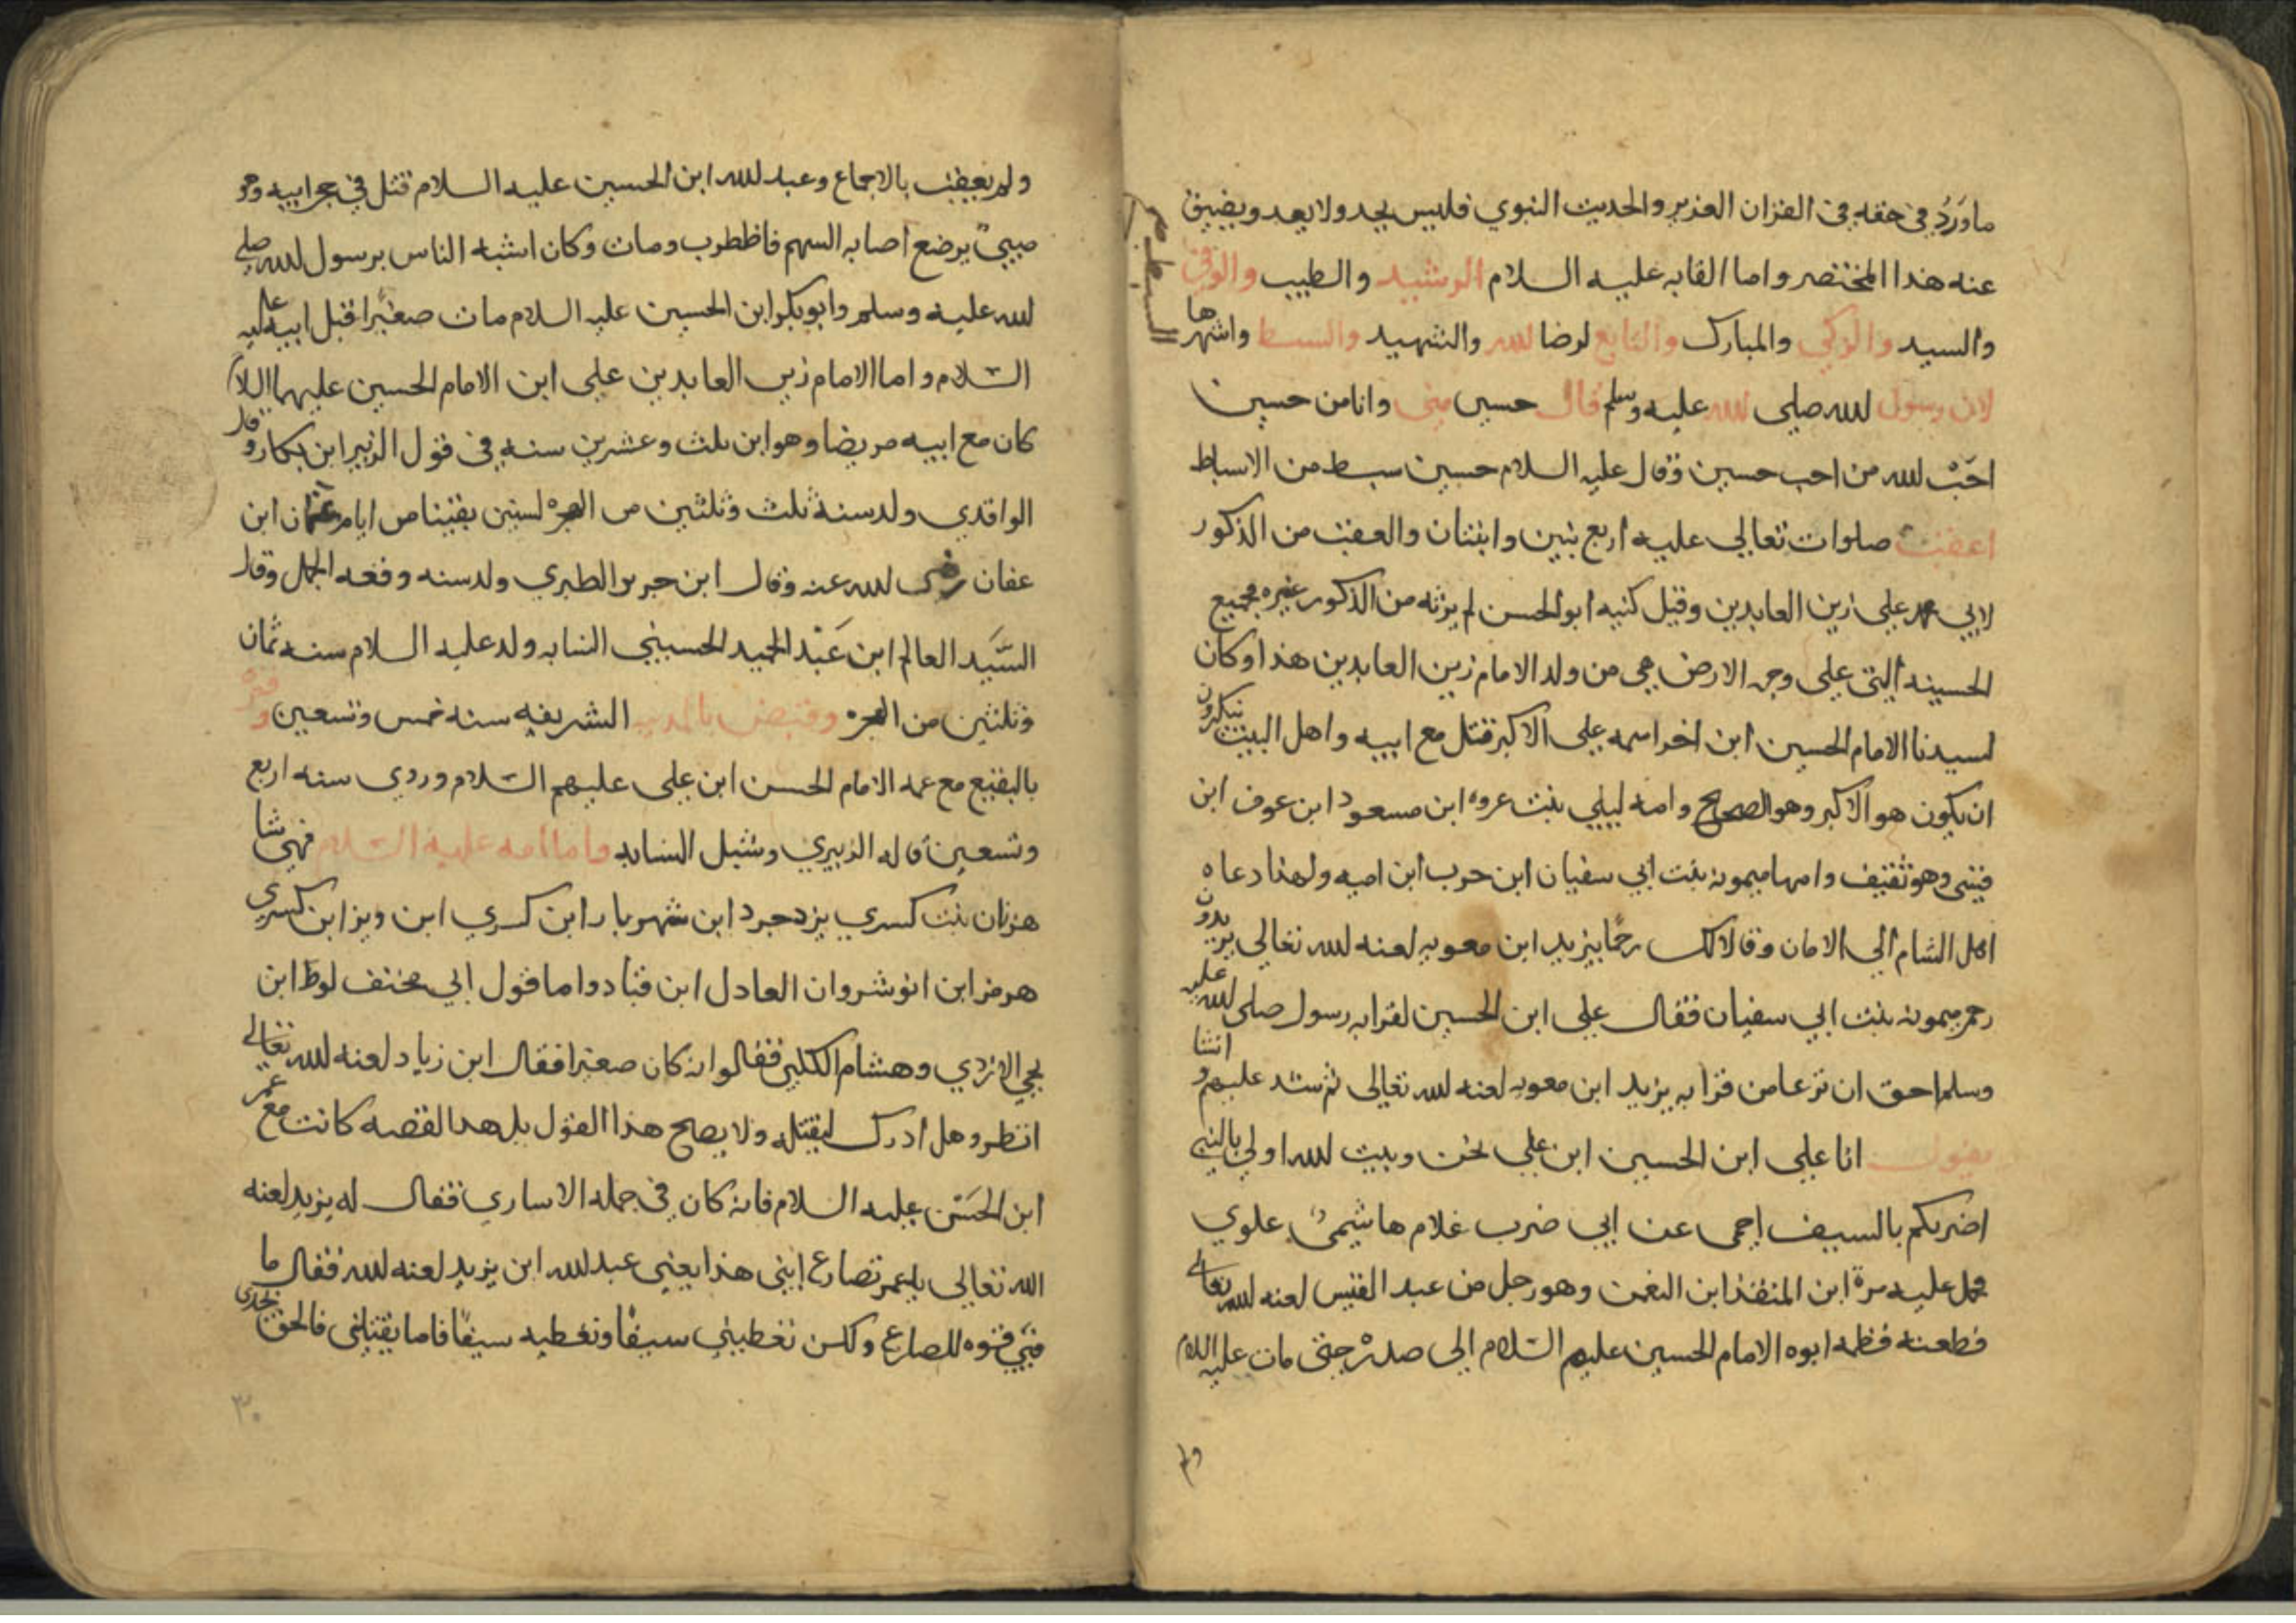 ما وَرَدَ في حقه في القران العزيز والحديث النبوي فليس يحد ولا يعد ويضيق
عنه هذا المختصر واما القابه عليه السلام الرشيد والطيب والوفي
والسيد والزكي والمبارك والتابع لرضا لله والشهيد والسبط واشهرها
السبط
لان رسول لله صلى لله عليه وسلم قال حسين مني وانا من حسين
احَبَّ لله من احب حسين وقال عليه السلام حسين سبط من الاسباط
اعقب صلوات تعالي عليه اربع بنين وابنتان والعقب من الذكور
لابي محمد علي زين العابدين وقيل كنيه ابو الحسن لم يرثه من الذكور غيره فجميع
الحسينه التي علي وجه الارض هي من ولد الامام زين العابدين هذا وكان
لسيدنا الامام الحسين ابن اخر اسمه علي الاكبر قتل مع ابيه واهل البيت ينكرون
ان يكون هو الاكبر وهو الصحيح وامه ليلي بنت عروه ابن مسعود ابن عوف ابن
قيسي وهو ثقيف وامها ميمونه بنت ابي سفيان ابن حرب ابن اميه ولهذا دعاه
اهل الشام الي الامان وقالا لك رحمًا بيزيد ابن معويه لعنه لله تعالي يريدون
رحم ميمونه بنت ابي سفيان فقال علي ابن الحسين لقرابه رسول صلى لله عليه
وسلم احق ان ترعا من قرابه يزيد ابن معويه لعنه لله تعالى ثم شد عليهم و انشا
يقول انا علي ابن الحسين ابن علي نحن وبيت لله اولي بالنبي
اضربكم بالسيف احمى عن ابي ضرب غلام هاشيمي علوي
فحمل عليه مرة ابن المنقذ ابن النعمن وهو رجل من عبد القيس لعنه لله تعالى
فطعنه فظمه ابوه الامام الحسين عليهم السلام الى صدره حتى مات عليه السلام
ولم يعقب بالاجماع وعبد لله ابن الحسين عليه السلام قتل في حجر ابيه وهو
صبيٌ يرضع اصابه السهم فاظطرب ومات وكان اشبه الناس برسول لله صلى
لله عليه وسلم وابو بكر ابن الحسين عليه السلام مات صغيرًا قبل ابيه عليه
السلام واما الامام زين العابدين علي ابن الامام الحسين عليهما السلام
كان مع ابيه مريضا وهو ابن ثلث وعشرين سنه في قول الزبير ابن بكار وقال
الواقدي ولد سنة ثلث وثلثين من الهجره لسنين بقينا من ايام عثمان ابن
عفان رضى لله عنه وقال ابن جرير الطبري ولد سنه وقعه الجمل وقال
السَّيَد العالم ابن عَبْد الحميد الحسيني النسابه ولد عليه السلام سنه ثمان
وثلثين من الهجره وقبض بالمدينه الشريفه سنه خمس وتسعين وقبره
بالبقيع مع عمه الامام الحسن ابن علي عليهم السلام وردي سنه اربع
وتسعين قاله الزبيري وشبل النسابه واما امه عليه السلام فهي شا
هزنان بنت كسري يزدجرد ابن شهريار ابن كسري ابن ويز ابن كسري
هرمز ابن انوشروان العادل ابن قبادو اما قول ابي مخنف لوط ابن
يحي الازدي وهشام الكلبي فقالوا انه كان صغيرا فقال ابن زياد لعنه لله تعالى
انتظرو هل ادرك ليقتله ولا يصح هذا القول بل هذا القصه كانت مع عمر
ابن الحَسَن عليه السلام فانه كان في جمله الاساري فقال له يزيد لعنه
الله تعالى يا عمر تصارع ابني هذا يعني عبد لله ابن يزيد لعنه لله فقال ما
فيّ قوه للصارع ولكن تعطيني سيفًا وتعطيه سيفًا فاما يقتلني فالحق بجدي
٣٠